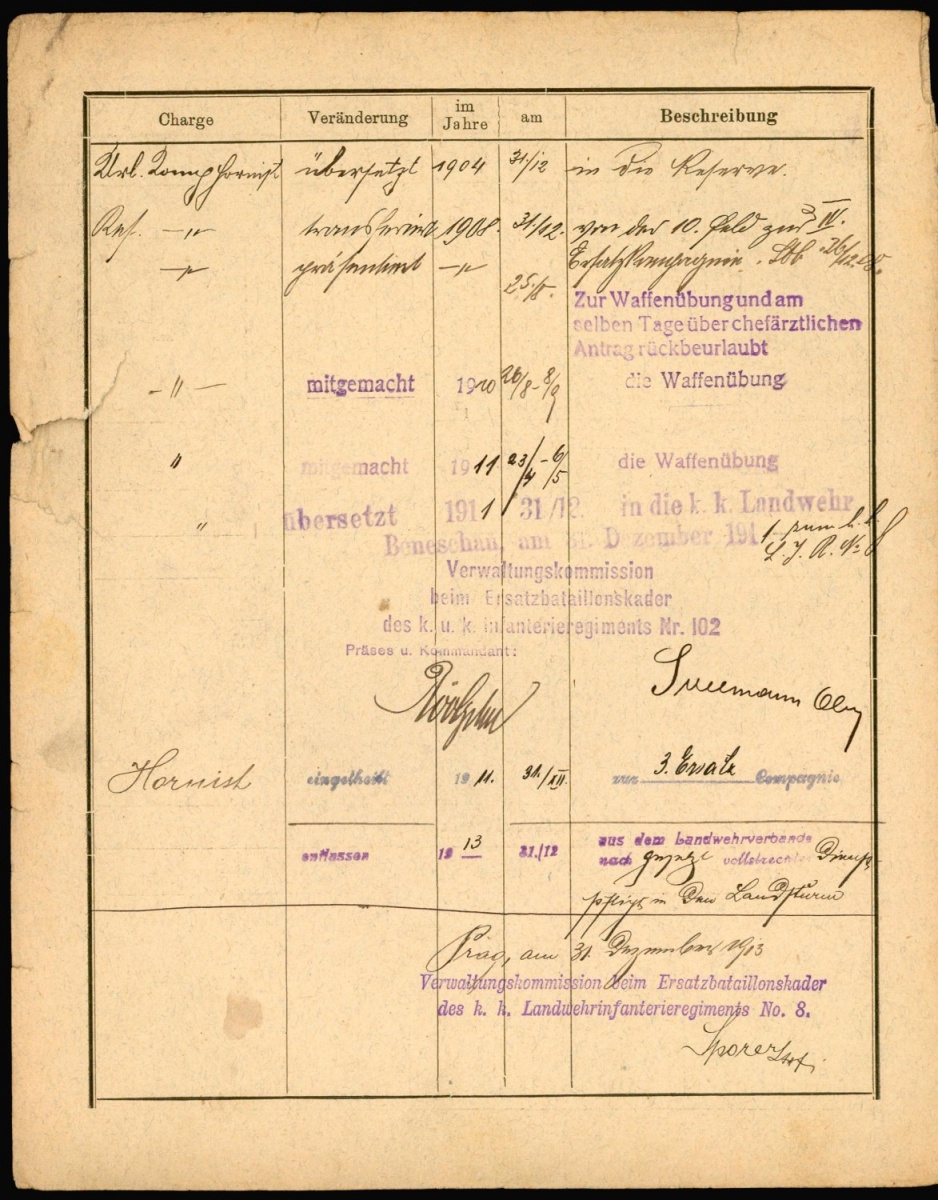 Charge Veränderung im Jahre am Beschreibung
Url. Komp.hornist übersetzt 1904 31/12 in die Reserve.
Res. —〃— transferiert 1908. 31/12. von der 10. Feld zur IV.
—〃— präsentiert —〃— Ersatzkompagnie.
25./8. Zur Waffenübung und am
selben Tage über chefärztlichen
Antrag rückbeurlaubt
—〃— mitgemacht 1910 26/8 – 8/9 die Waffenübung
〃 mitgemacht 1911 23/4 – 6/5 die Waffenübung
〃 übersetzt 1911 31/12. in die k. k. Landwehr
Beneschau, am 31. Dezember 1911. zum k. k.
L. I. R. № 8
Verwaltungskommission
beim Ersatzbataillonskader
des k. u. k. Infanterieregiments Nr. 102
Präses u. Kommandant:
Hornist eingeteilt 1911. 31./XII. zur 3. Ersatz Compagnie
entlassen 1913 31./12 aus dem Landwehrverbande
nach gesetzl vollstreckter Dienst-
pflicht in den Landsturm
Prag, am 31. Dezember 1913
Verwaltungskommission beim Ersatzbataillonskader
des k. k. Landwehrinfanterieregiments No. 8.
Sporer